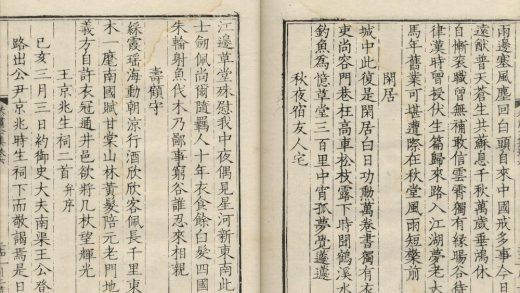 雨邊塞風塵回白頭自來中國戒多事今日
遠猷普天蒼生共蘇息千秋萬歲垂鴻休
自慚袞職曾無補敢信雲霄獨有緣暘谷待
律漢時曾授伏生篇歸來路入江湖夢老大
馬年舊業可堪遭際在秋堂風雨短檠前
閑居
城中此復是閑居白日功勳萬卷書獨有衣
更尚容門巷枉高車松枝露下時聞鶴溪水
釣魚為憶草堂三百里中宵孤夢覺蘧蘧
秋夜宿友人宅
江邊草堂殊慰我中夜偶見星河新東南此
士劒佩尚爾隨羈人十年衣食餘白髮四國
朱輪射魚伐木乃鄙事窮谷誰忍來相親
壽顧守
綵霞瑤海動朝涼行酒欣欣客佩長千里東
木一麾南國賦甘棠山林黃髮陪元老門地
義方自許衣冠通井邑欲將几杖望輝光
王京兆生祠二首并序
己亥三月三日約御史大夫南渠王公登
路出公尹京兆時生祠下而敬謁焉是日